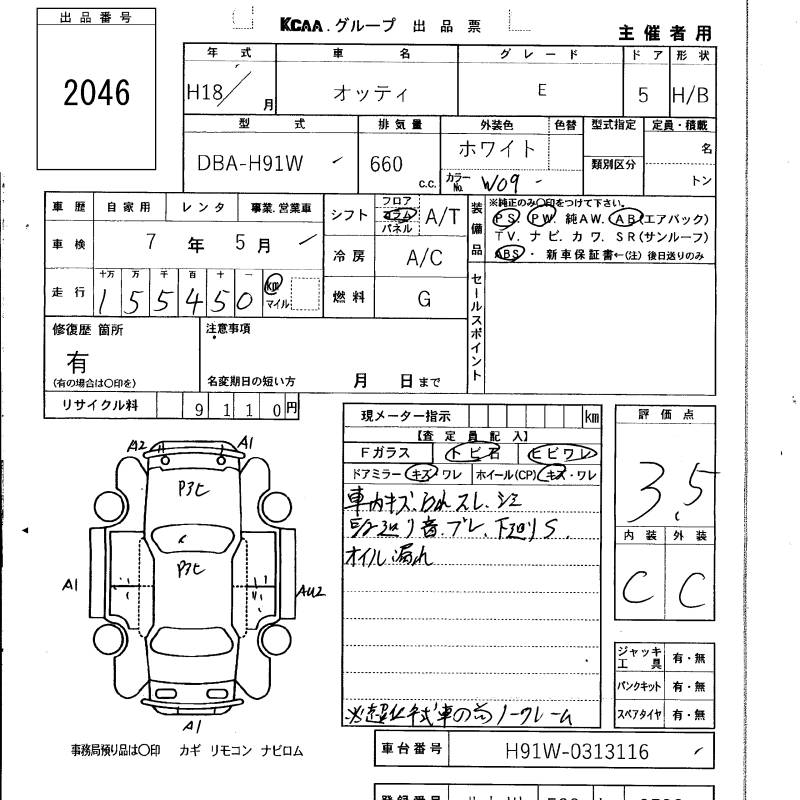 出品番号
2046
KCAA.グループ 出品票
主催者用
年式 車名 グレード ドア 形状
H18/ 月 オッティ E 5 H/B
型式 排気量 外装色 色替 型式指定 定員・積載
DBA-H91W 660 c.c. ホワイト 名
カラーNo. W09 類別区分 トン
車歴 自家用 レンタ 事業.営業車
車検 7年 5月
走行 十万 万 千 百 十 一
155450 km マイル
シフト フロア コラム パネル A/T
冷房 A/C
燃料 G
装備品
※純正のみ〇印をつけて下さい。
PS PW. 純AW. AB(エアバック)
TV. ナビ. カワ. SR(サンルーフ)
ABS・新車保証書←(注)後日送りのみ
セールスポイント
修復歴 箇所
有
(有の場合は〇印を)
注意事項
名変期日の短い方 月 日まで
リサイクル料 9110円
現メーター指示 km
【査定員記入】
Fガラス トビ石 ヒビワレ
ドアミラー キズ・ワレ ホイール(CP) キズ・ワレ
車内キズ.われ.スレ.シミ
音.ブレ.下廻りS
オイル漏れ
※超低年式車の為ノークレーム
評価点
3.5
内装 外装
C C
ジャッキ工具 有・無
パンクキット 有・無
スペアタイヤ 有・無
A2 A1
P3ヒ
P3ヒ
A1
AU2
A1
事務局預り品は〇印 カギ リモコン ナビロム
車台番号 H91W-0313116
登録番号